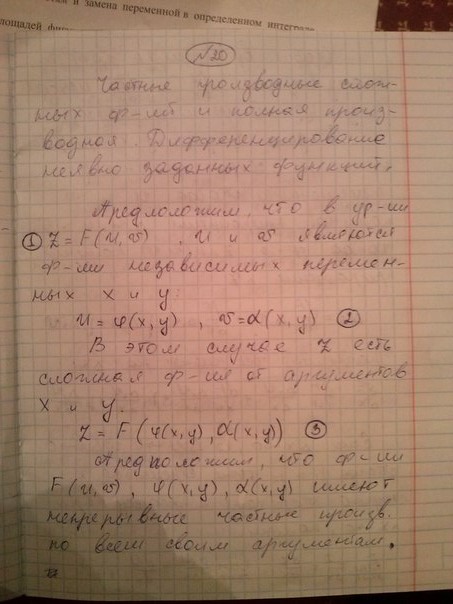 и замена переменной в определенном интеграле
№20
Частные производные слож-
ных ф-ий и полная произ-
водная. Дифференцирование
неявно заданных функций.
Предположим, что в ур-ии
① Z = F(u,v). u и v являются
ф-ми независимых перемен-
ных x и y:
u = φ(x,y), v=α(x,y) ②
В этом случае Z есть
сложная ф-ия от аргументов
x и y.
Z = F(φ(x,y),α(x,y)) ③
Предположим, что ф-ии
F(u,v), φ(x,y), α(x,y) имеют
непрерывные частные произв.
по всем своим аргументам.